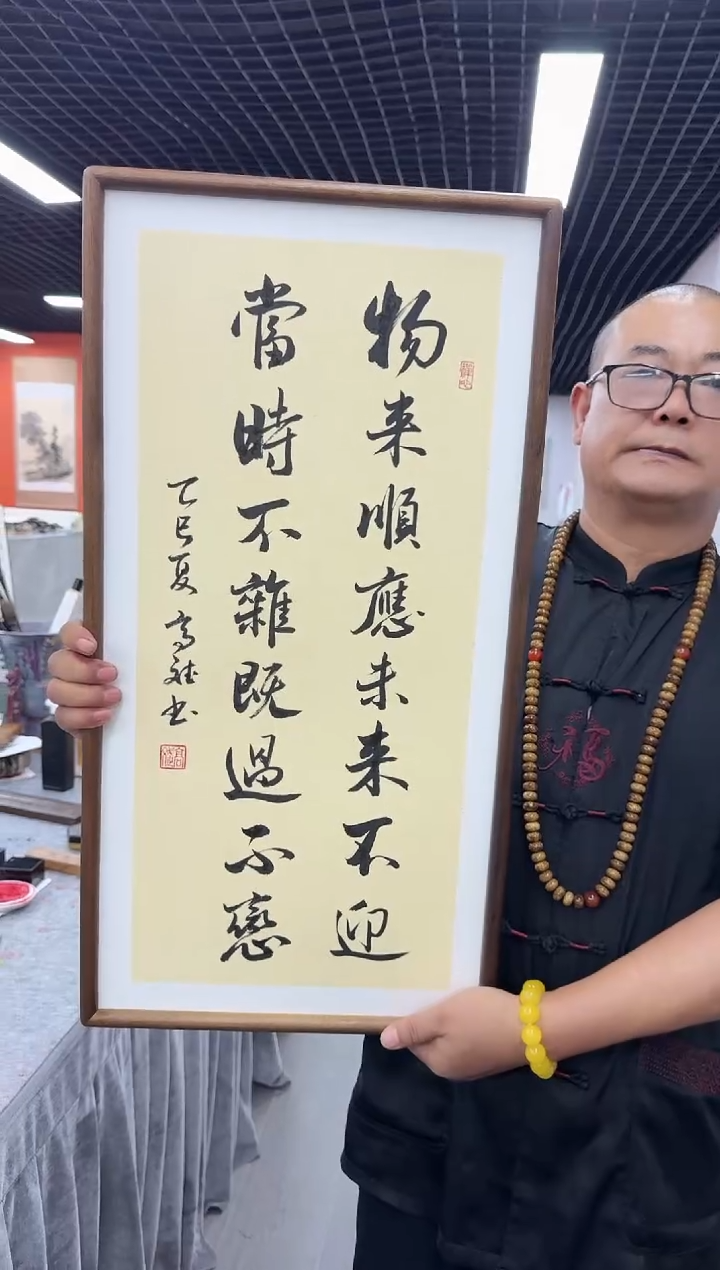 物来順應未来不迎
當時不雜既過不戀
乙巳夏 高斌书
福